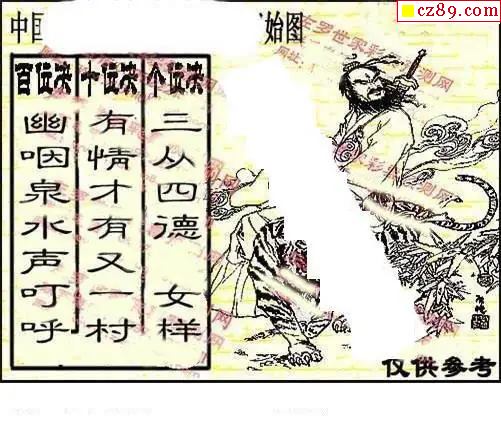 cz89.com
中 始图
百位决 十位决 个位决
幽咽泉水声叮呼
有情才有又一村
三从四德 女样
仅供参考